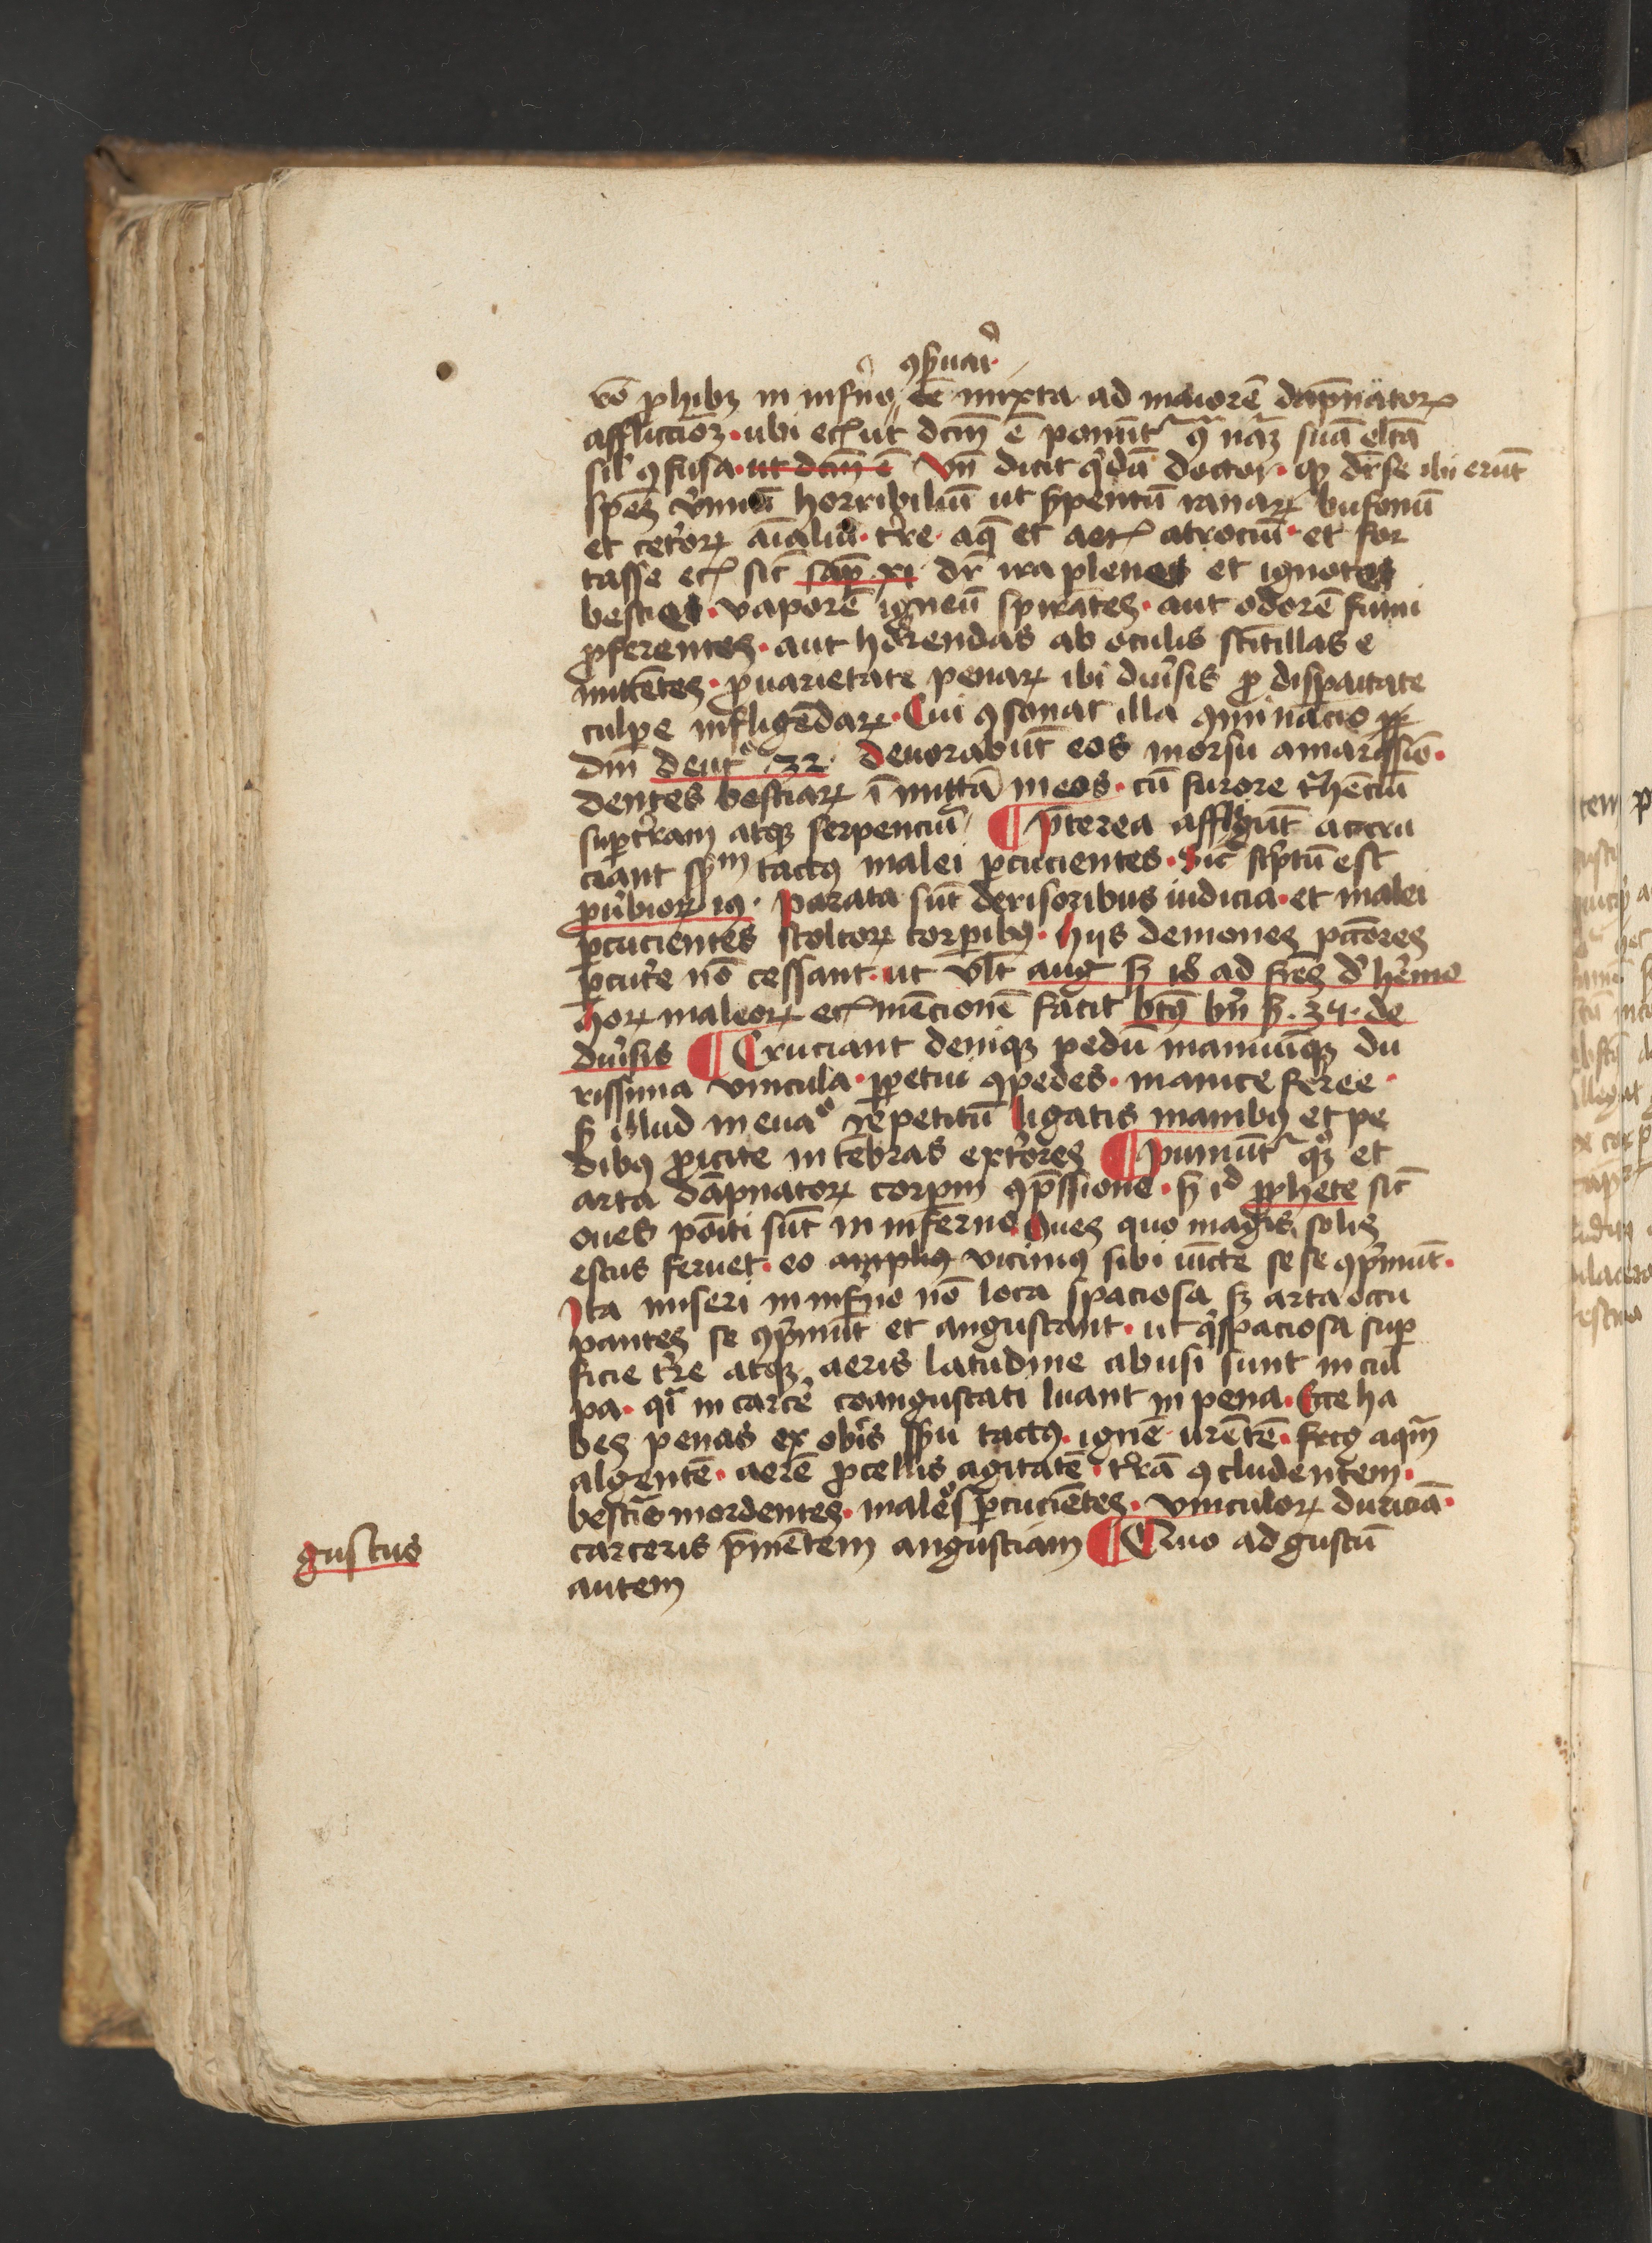 ꝯẜuari
vō ꝓhibꝫ in inferno eē mixta ad maiorē dāpnatoꝝ
affliccioꝫ · ubi ecꝭ ut dcm̄ ē ponunt᷑ ꝗ naꝫ suā eltā
sil᷑ ꝯfusa · ut dcm̄ ē Vn̄ dicit ꝗ᷑dā doctor · ꝙ dr̄se ibi erūt
spēs v᷑miū horribiliū ut ẜpentū ranaꝝ bufonū
et cet᷑oꝝ aīaliū · t᷑re · aq̄ et aerꝭ atrociū · et for
tasse ecꝭ sic̄ sap̄ xi dr̄ ira plenas et ignotas
bestias · vaporē igneū spirātes · aut odorē fumi
ꝓferentes · aut horrendas ab oculis scītillas e
mittētes · ꝓ uarietate penaꝝ ibi diu᷑sis ꝓ dispaitate
culpe infligēdaꝝ · Cui ꝯsonat illa ꝯminacio
dm̄ deut᷑º 32 · devorabūt eos morsu amarissīo ·
dentes bestiaꝝ ī mittā in eos · cū furore t᷑hēciū
suꝑt᷑ram atqꝫ serpenciū ¶ Pͤterea affligūt ac cru
ciant sm̄ tactꝰ malei ꝑcucientes · Sic̄ sc᷑ptū est
ꝓu᷑bioꝝ 19 · parata sūt derisoribus iudicia · et malei
ꝑcucientes stoltoꝝ corꝑibꝰ · hijs demones pctōres
ꝑcut᷑e nō cessant · ut vl̄t aug ẜ 18 ad fr̄es d᷑ h᷑emo
hoꝝ maleoꝝ ecꝭ mēcionē facit btꝰ bn̄ ẜ · 34 · de
diu᷑sis ¶ Cruciant deniqꝫ pedū manuūqꝫ du
rissima vincula · ꝑpetui ꝯpedes · manice feree ·
ẜ illud in euaº repetitū ligatis manibꝰ et pe
dibꝰ ꝓicite in tebras ext᷑iores ¶ Puniunt᷑ qꝫ et
arta dāpnatoꝝ corpm ꝯp̄ssione · ẜ id ꝓphete sic̄
oues poīti sūt in inferno Oues quo magis solis
estus feruet · eo amplꝰ vicinꝰ sibi iūcte se se ꝯpͥmūt ·
Ita miseri in inferno nō loca spaciosa ẜ arta occu
pantes se ꝯpͥmūt et angustant · ut ꝗ᷑ spaciosa suꝑ
ficie t᷑re atqꝫ aeris latudine abusi sunt in cul
pa · qͥ in carcē coangustati luant in pena · Ecce ha
bes penas ex obīs spū tactꝰ · ignē urētē · frig aqm̄
algentē · aerē ꝓcellis agitatē · t᷑rā ꝯcludentem ·
bestias mordentes · maleos ꝑcuciētes · vinculoꝝ duriciā ·
carceris p̄mētem angustiam ¶ Quo ad gustū
autem
gustus